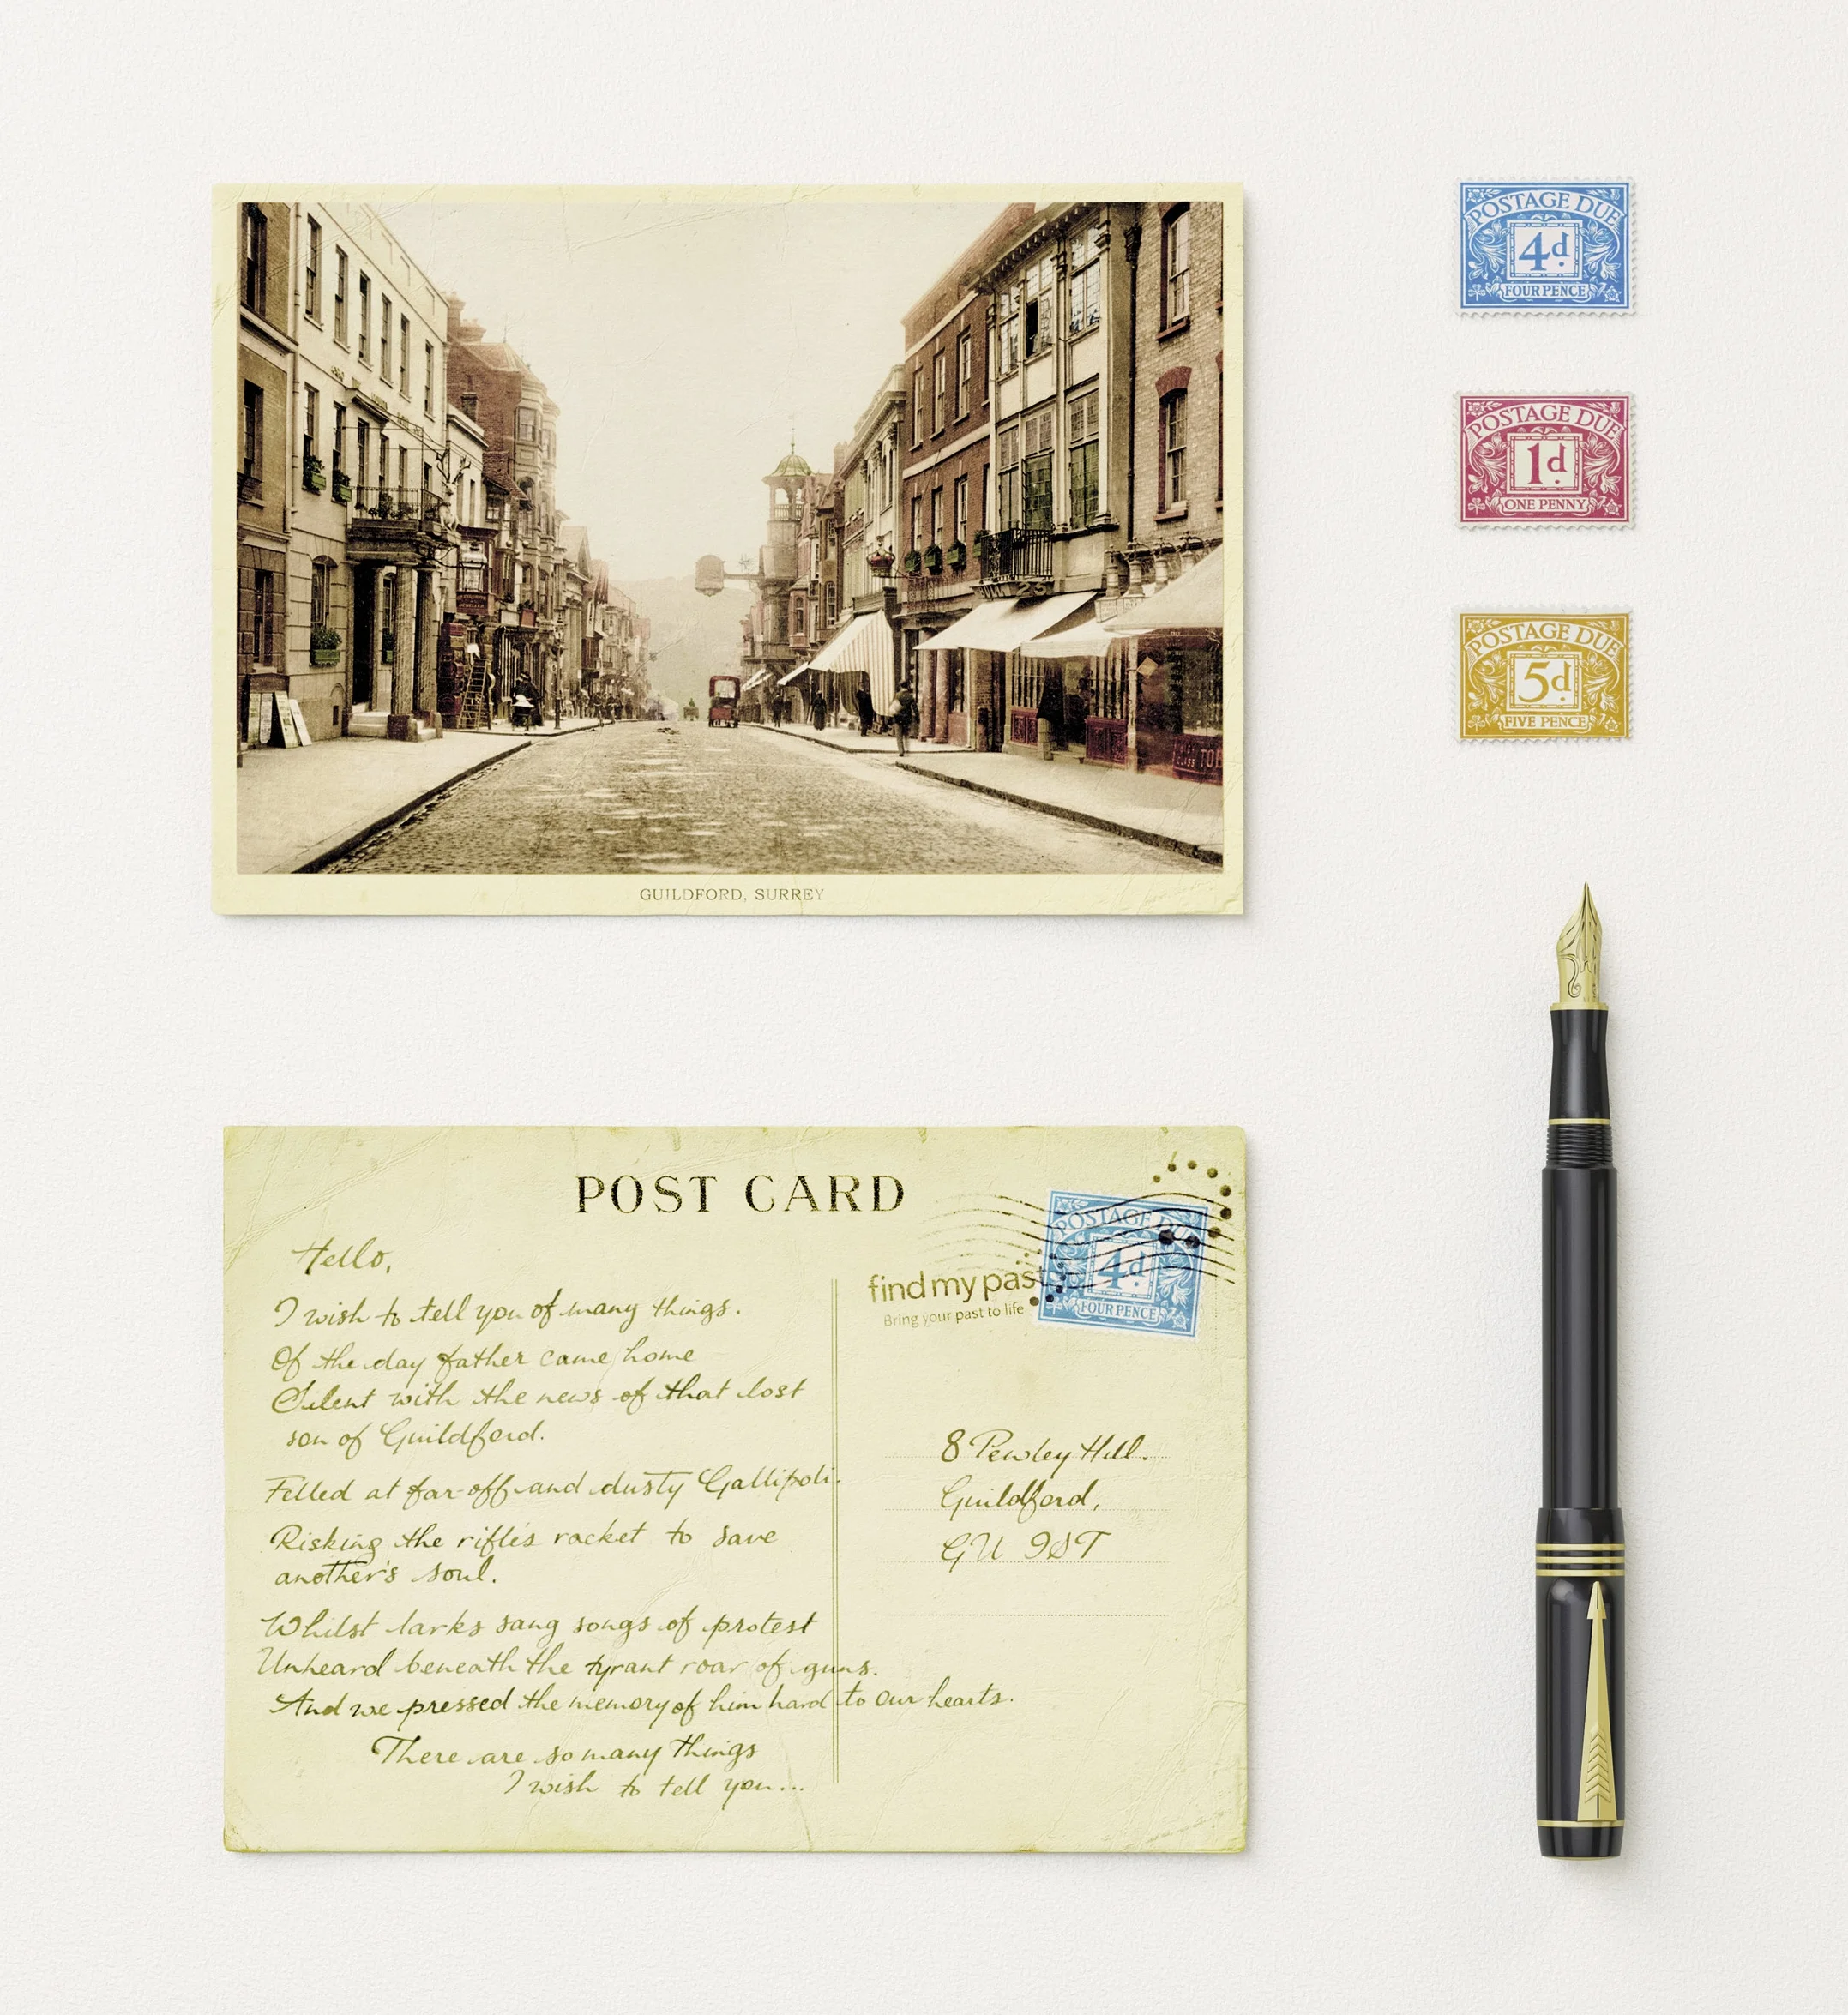 POSTAGE DUE
4d.
FOUR PENCE
POSTAGE DUE
1d.
ONE PENNY
POSTAGE DUE
5d.
FIVE PENCE
25
TOB
GUILDFORD, SURREY
POST CARD
POSTAGE DUE
4d.
FOUR PENCE
find my past
Bring your past to life
Hello,
I wish to tell you of many things.
Of the day father came home
Silent with the news of that lost
son of Guildford.
Felled at far-off and dusty Gallipoli.
Risking the rifle's racket to save
another's soul.
Whilst larks sang songs of protest
Unheard beneath the tyrant roar of guns.
And we pressed the memory of him hard to our hearts.
There are so many things
I wish to tell you...
8 Pewley Hill.
Guildford,
GU 9ST